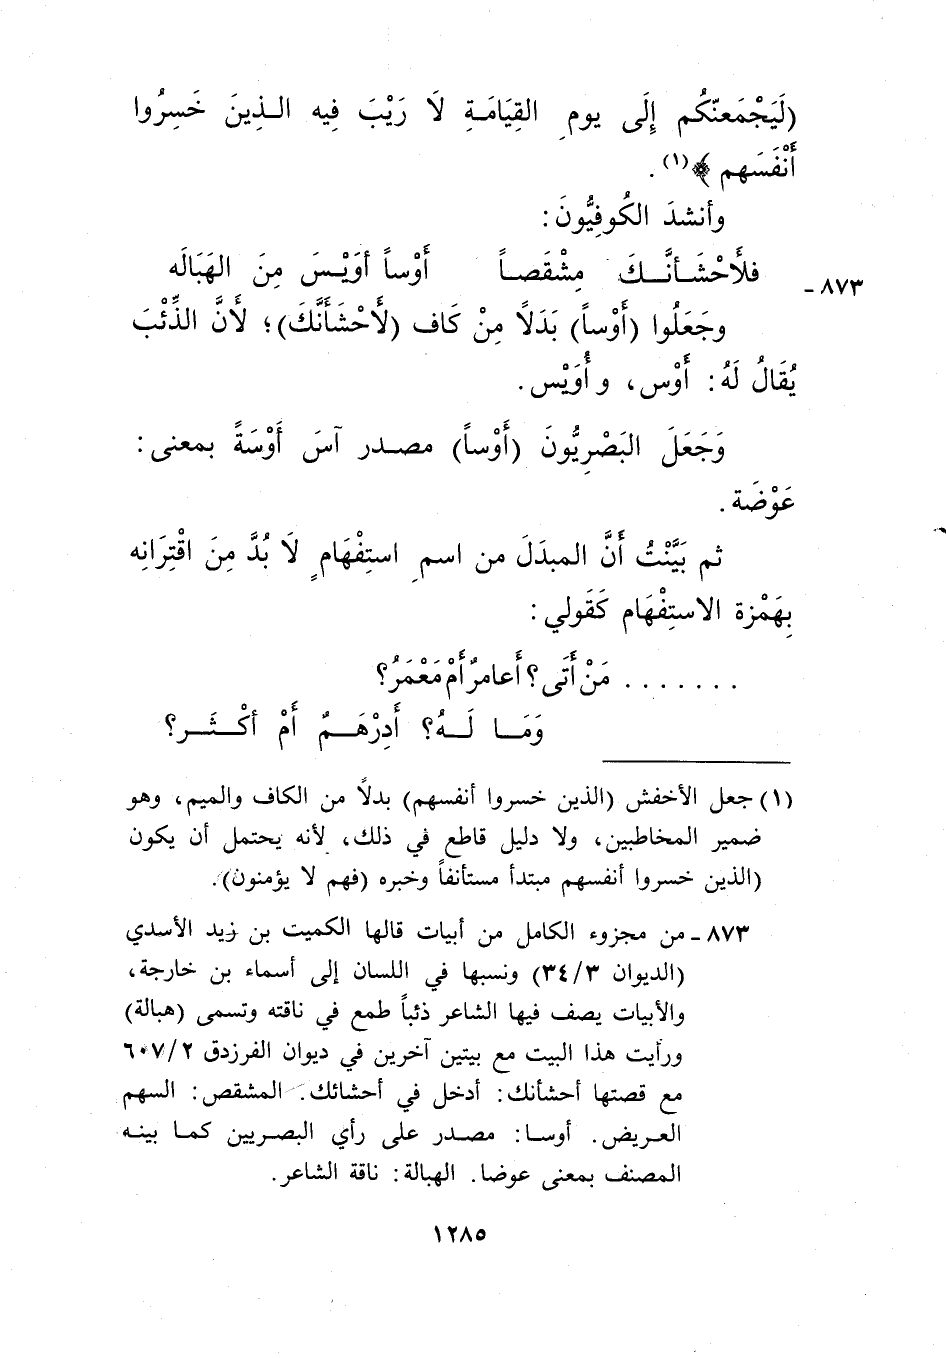 (لَيَجْمَعنّكُم إِلَى يومِ القِيَامَةِ لَا رَيْبَ فِيه الـذِينَ خَسِرُوا
أَنْفُسَهم ﴾(١) .
وأنشدَ الكُوفِيُّونَ :
٨٧٣ - فلَأَحْشَـأنَّــكَ مِشْقَصـاً أَوْساً أوَيْـسَ مِنَ الهَبَالَه
وجَعَلُوا (أَوْساً) بَدَلًا مِنْ كَاف (لأَحْشَأَنَّكَ)؛ لأَنَّ الذِّئْبَ
يُقَالُ لَهُ: أَوْس، و أُوَيْس .
وَجَعَلَ البَصْرِيُّونَ (أَوْساً) مصـدر آسَ أَوْسَةً بمعنى :
عَوْضَة .
ثم بَيَّنْتُ أَنَّ المبدَلَ من اسمِ استِفْهَامٍ لَا بُدَّ مِنَ اقْتِرَانِه
بِهَمْزة الاستِفْهَام كَقَولي :
. . . . . . . مَنْ أَتَى؟ أَعامرٌ أَمْ مَعْمَرُ؟
وَمَــا لَــهُ؟ أَدِرْهَــمٌ أَمْ أكْــثَــر؟
(١) جعل الأخفش (الذين خسروا أنفسهم) بدلاً من الكاف والميم، وهو
ضمير المخاطبين، ولا دليل قاطع في ذلك، لأنه يحتمل أن يكون
(الذين خسروا أنفسهم مبتدأ مستأنفاً وخبره (فهم لا يؤمنون).
٨٧٣ - من مجزوء الكامل من أبيات قالها الكميت بن زيد الأسدي
(الديوان ٣/ ٣٤) ونسبها في اللسان إلى أسماء بن خارجة،
والأبيات يصف فيها الشاعر ذئباً طمع في ناقته وتسمى (هبالة)
ورأيت هذا البيت مع بيتين آخرين في ديوان الفرزدق ٢/ ٦٠٧
مع قصتها أحشأنك: أدخل في أحشائك. المشقص: السهم
العريض. أوسا: مصدر على رأي البصريين كما بينه
المصنف بمعنى عوضا. الهبالة: ناقة الشاعر.
١٢٨٥